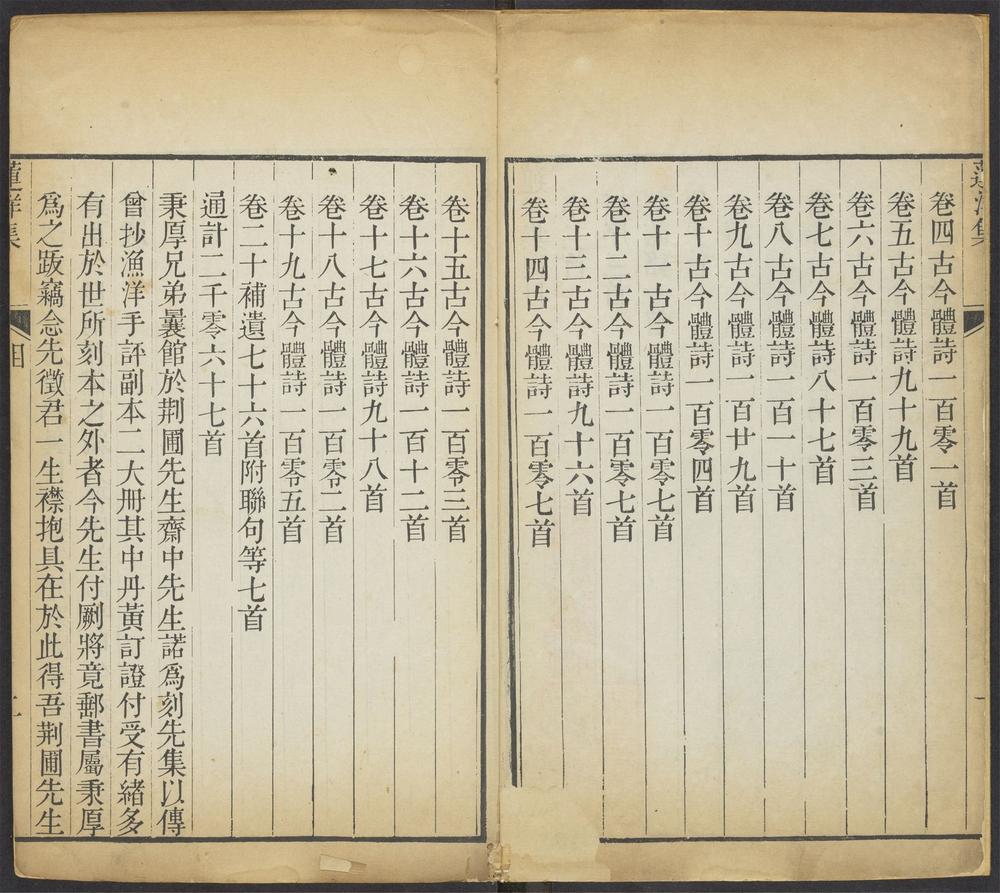 卷四古今體詩一百零一首
卷五古今體詩九十九首
卷六古今體詩一百零三首
卷七古今體詩八十七首
卷八古今體詩一百一十首
卷九古今體詩一百廿九首
卷十古今體詩一百零四首
卷十一古今體詩一百零七首
卷十二古今體詩一百零七首
卷十三古今體詩九十六首
卷十四古今體詩一百零七首
卷十五古今體詩一百零三首
卷十六古今體詩一百十二首
卷十七古今體詩九十八首
卷十八古今體詩一百零二首
卷十九古今體詩一百零五首
卷二十補遺七十六首附聯句等七首
通計二千零六十七首
秉厚兄弟曩館於荆圃先生齋中先生諾爲刻先集以傳
曾抄漁洋手評副本二大冊其中丹黃訂證付受有緒多
有出於世所刻本之外者今先生付劂將竟郵書屬秉厚
爲之䟦竊念先徵君一生襟抱具在於此得吾荆圃先生